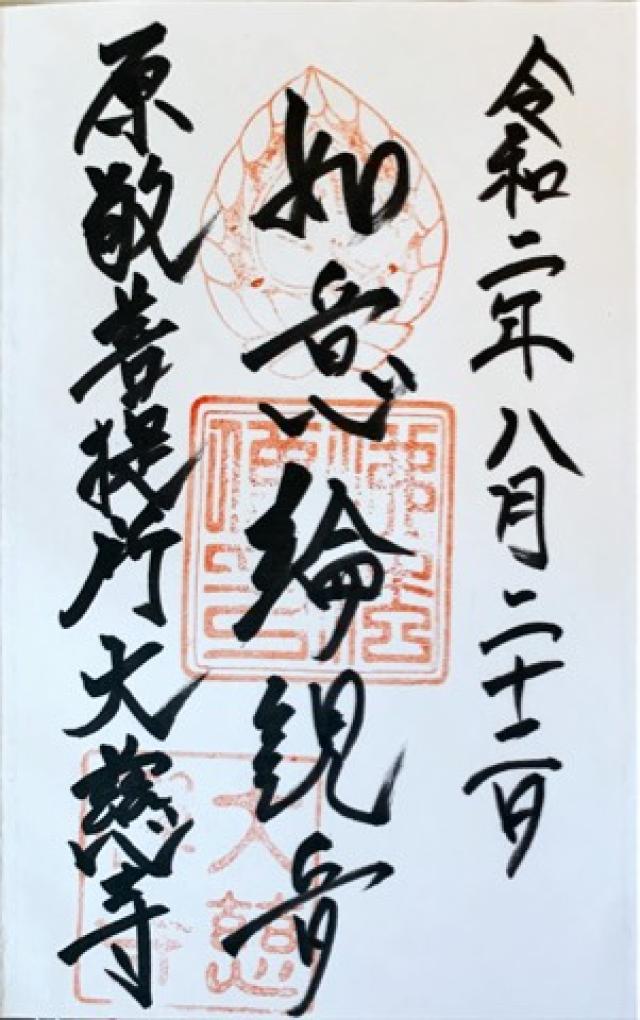 令和二年八月二十二日
如意輪観音
原敬菩提所大慈寺
大慈